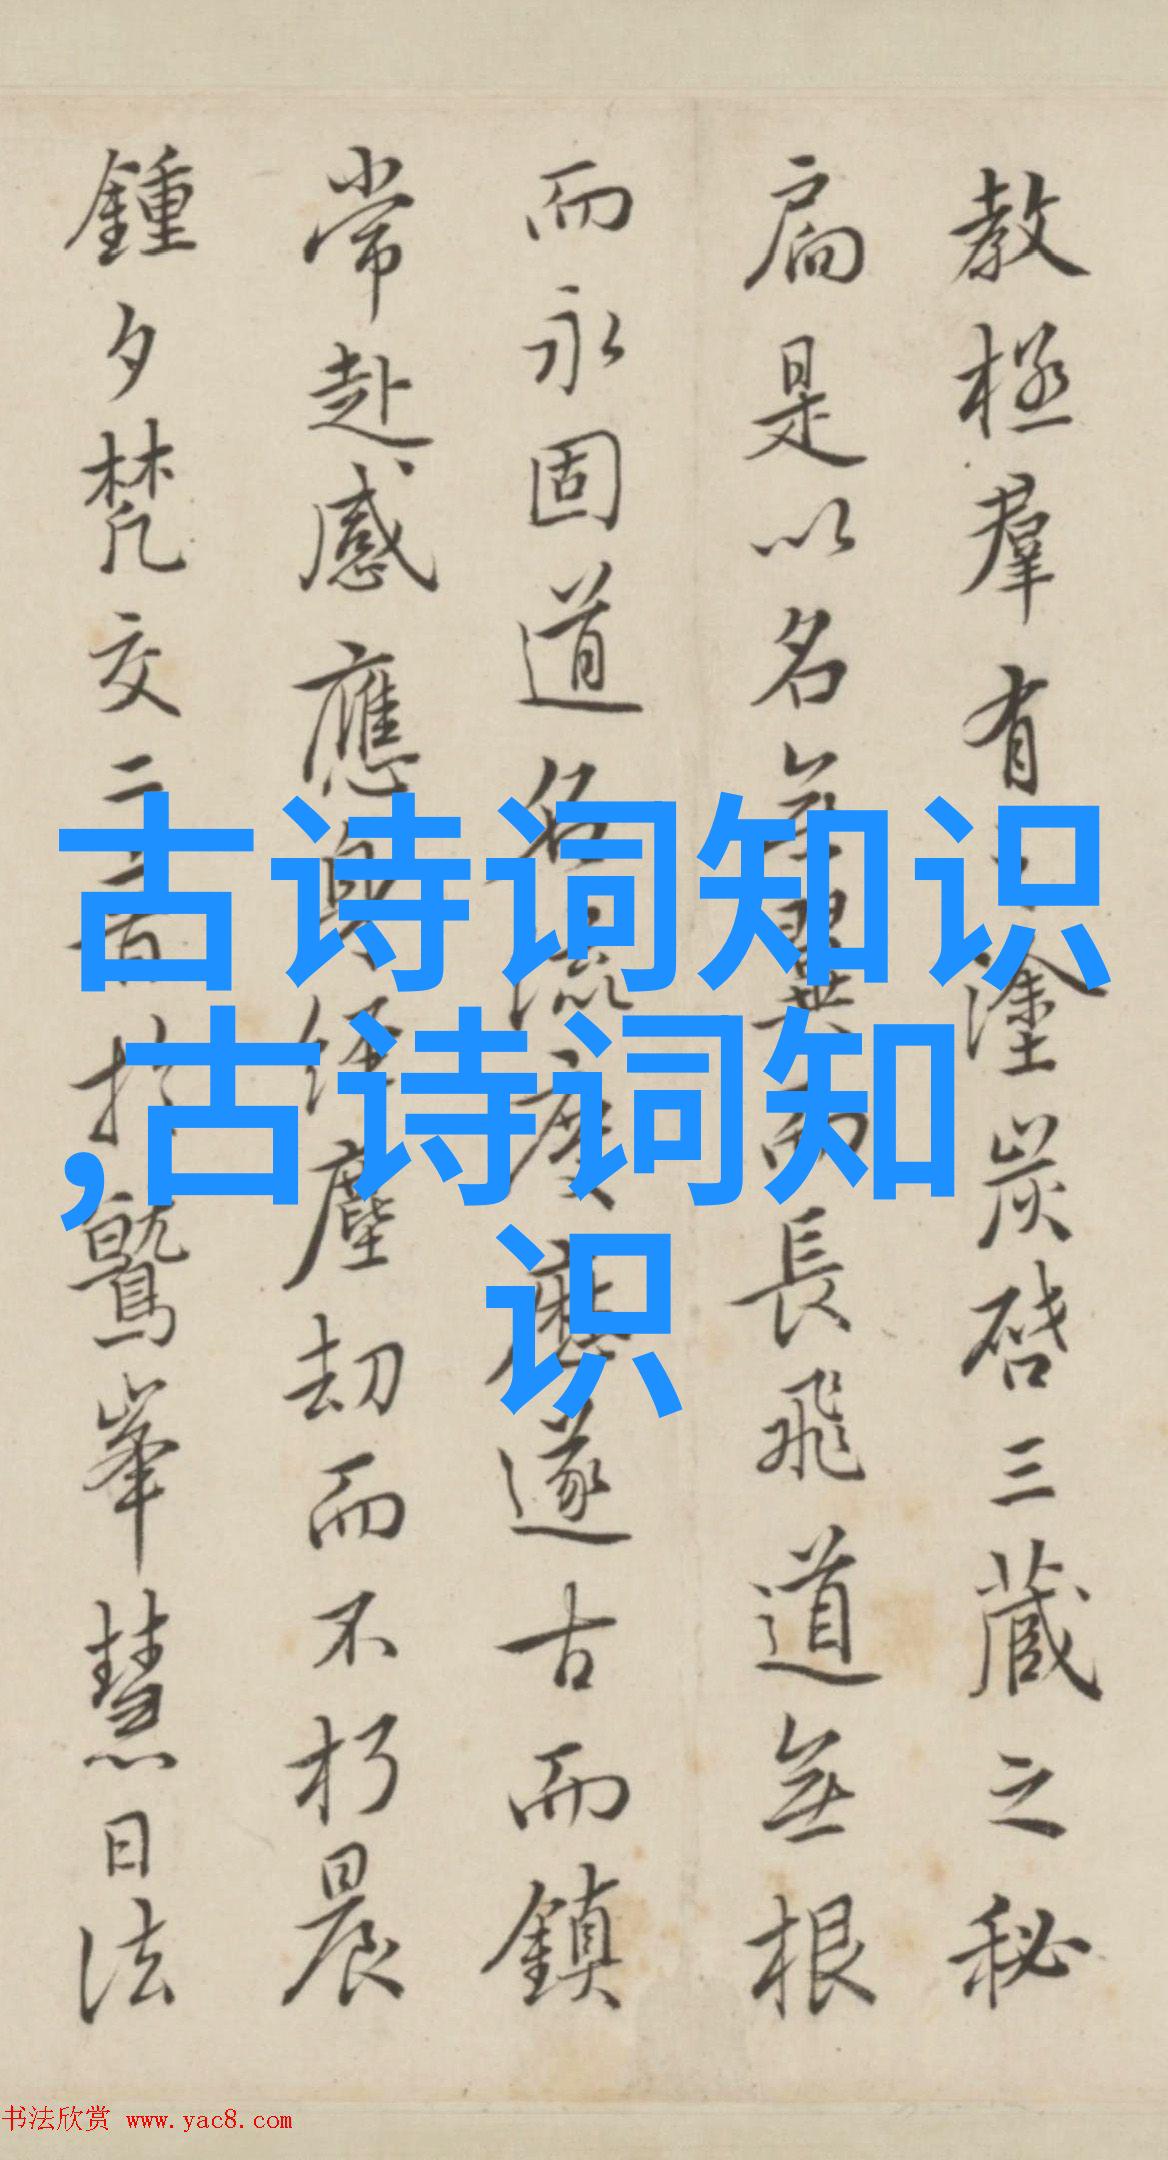 教極羣有之塗炭啓三藏之秘
扄是以名無翼而長飛道無根
而永固道名流慶歷遂古而鎮
常赴感應身經塵劫而不朽晨
鍾夕梵交二音於鷲峯慧日法
古诗词知识
,古诗词知
识
书法欣赏 www.yac8.com